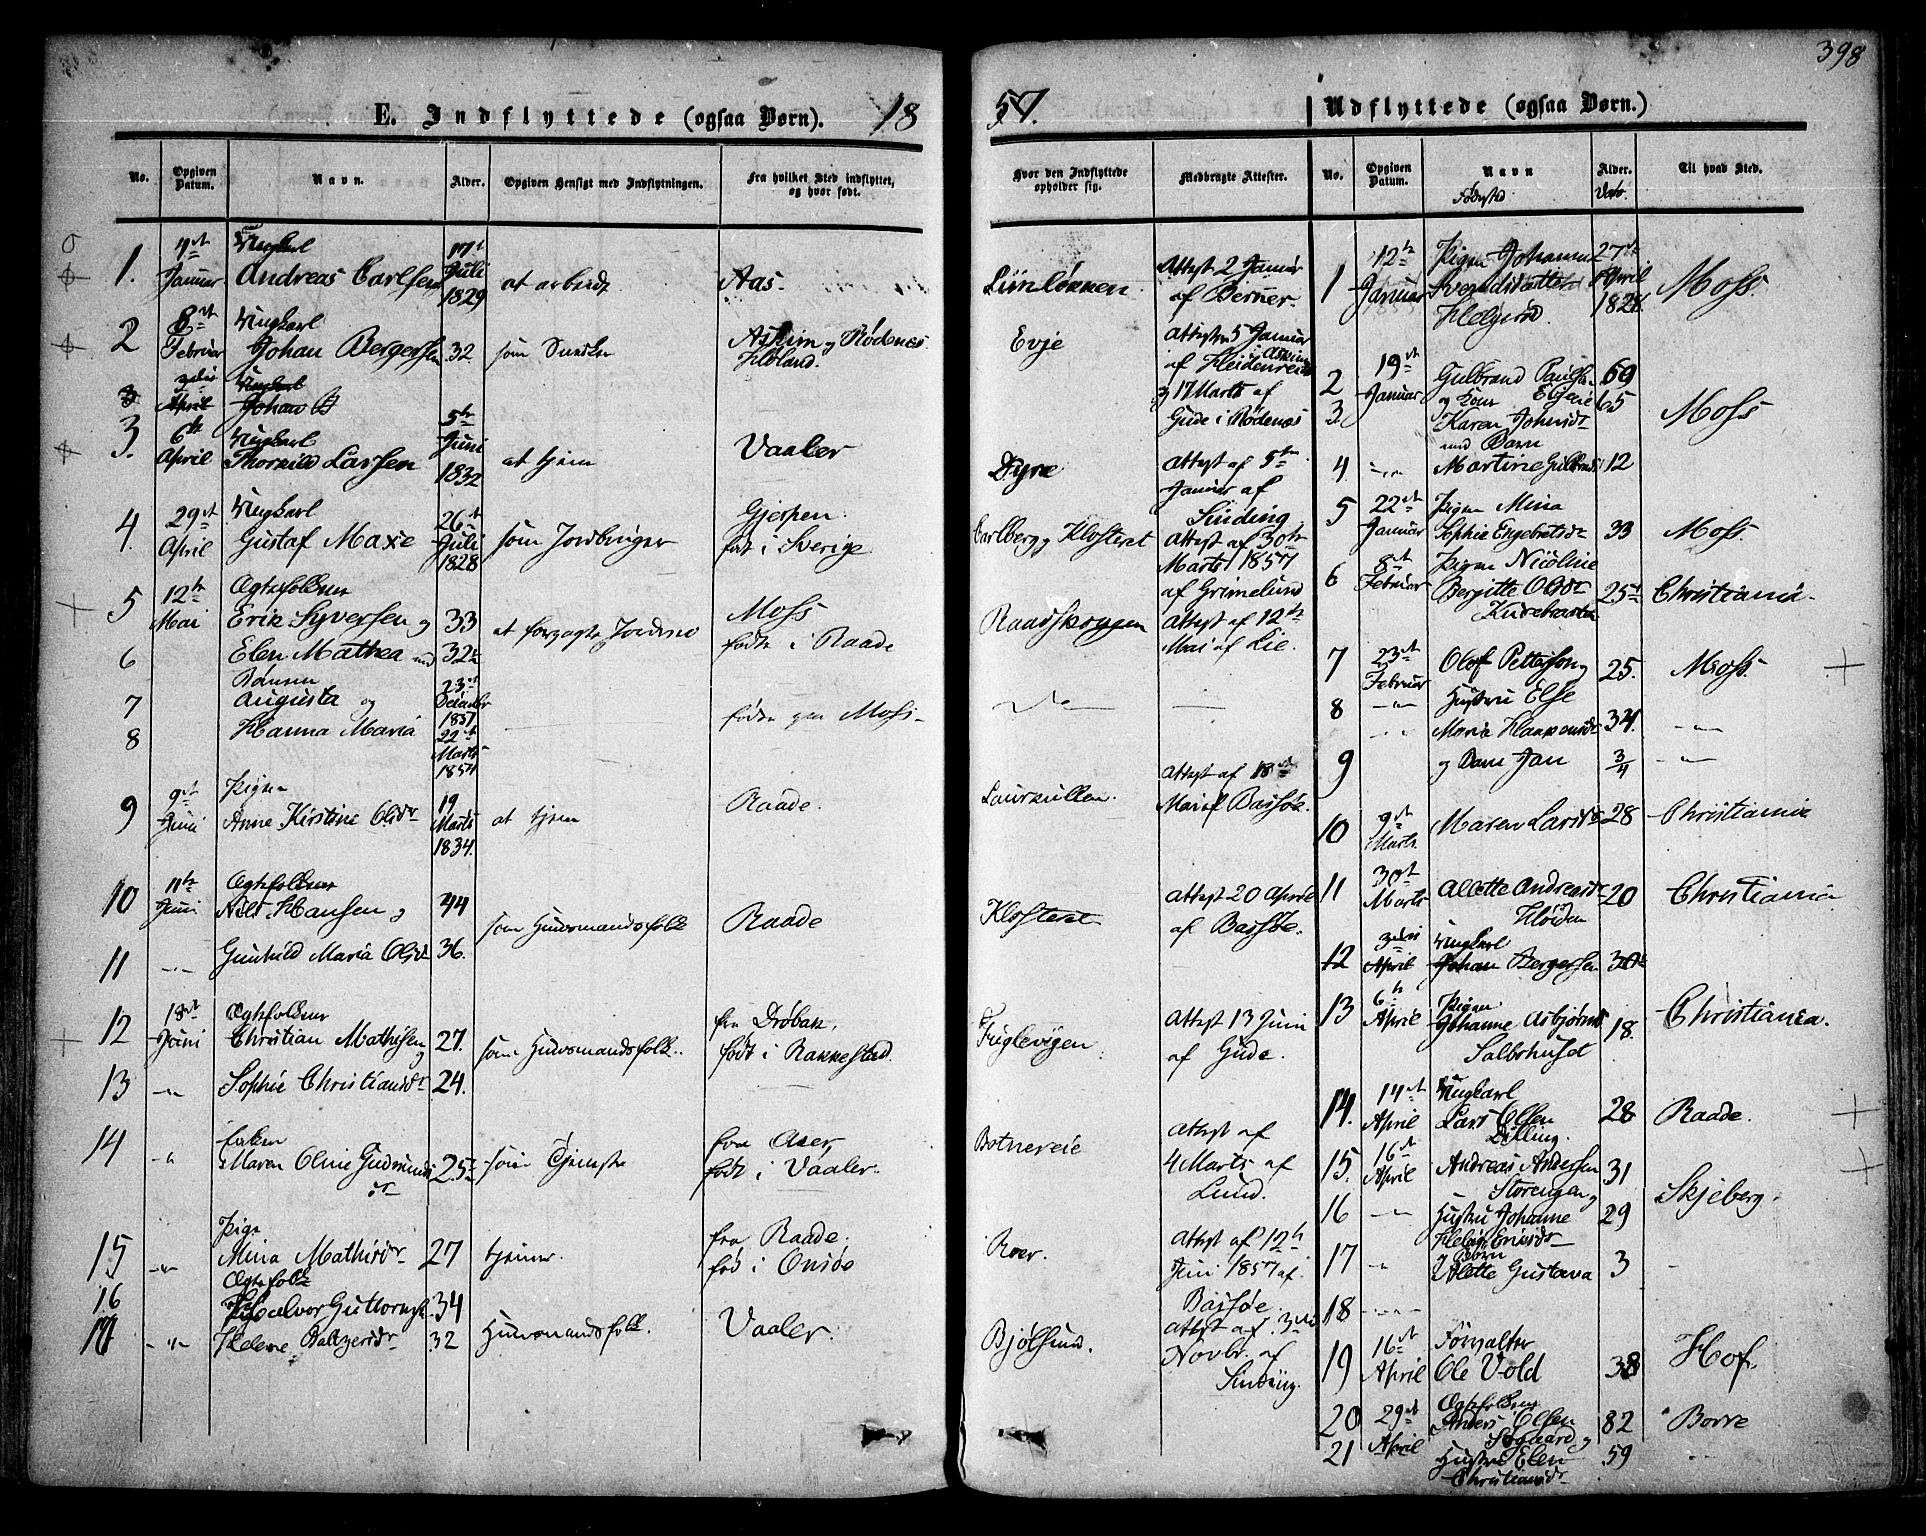 398
E. Indflyttede (ogsaa Børn). 18
57. Udflyttede (ogsaa Børn.)
No. Opgiven Datum. Navn. Alder. Opgiven Hensigt med Indflytningen. Fra hvilket Sted indflyttet, og hvor født.
1. Januar Andreas Carlsen 17 Juli 1829 at arbeide Aas.
2 8de Februar Ungkarl Johan Bergersen 32 som Askim og Rødenes
3die April Ungkarl Johan B
3. 6te April Ungkarl Thorkild Larsen 5te Juni 1832 at tjene Vaaler
4. 29de April Ungkarl Gustaf Maxe 26de Juli 1828 som Jordbruger Gjerpen. født i Sverige
5 12te Mai Ægtefolkene Erik Syversen og 33 Moss
6 Elen Mathea med 32 fødte i Raade
7 Børnene Augusta og 23de December 1851
8 Hanna Maria 22de Marts 1854 fødte paa Moss
9 9de Juni Pigen Anne Kirstine Olsdr 19 Marts 1834. at tjene Raade.
10 11te Juni Ægtefolkene Nils Hansen og 44 som Huusmandsfolk Raade
11 Gunhild Maria Olsdr 36.
12 18de Juni Ægtefolkene Christian Mathisen og 27. som Huusmandsfolk. fra Drøbak. født i Rakkestad.
13 " Sophie Christiansdr 24.
14 " Maren Oline Gudmunds dr 25 som Tjeneste født i Vaaler.
15 " Pige Mina Mathisdr 27 tjener. fra Raade. fød i Onsøe
16 Ægtefolk Halvor Guttormsen 34
17 " Helene Baltzersdr 32 Huusmandsfolk. Vaaler.
Hvor den Indflyttede opholder sig. Medbragte Attester.
Liinløkken Attest 2 Januar af Berner.
Evje Attester 5 Januar af Heidenreich i Askim
17 Marts af Gude i Rødenes
Dyre Attest af 5te Januar af Sinding
Carlberg, Klosteret Attest af 30te Marts 1857 af Grimelund
Raadskougen Attest af 12te Mai af Lie.
Laurkullen. Attest af 18de Mai af Bassøe.
Klosteret Attest 20 April af Bassøe.
Fuglevigen Attest 13 Juni af Gude.
Botnereie Attest af 4 Marts af Lund.
Roer. Attest af 12te Juni 1857 af Bassøe
Bjølsund. Attest af 3die Novbr. af Sinding.
No. Opgiven Datum. Navn Fødested Alder. Til hvad Sted.
1 12te Januar Pigen Johanne Svendsdatter 27de April Moss
2 19de Januar Gulbrand Paulsen 69
3. og Kone Karen Johnsdr 65 Moss
4. med Barn Martine Gulbrands 12
5 22de Januar Pigen Mina Sophie Engebretsdr 33 Moss.
6 8de Februar Pigen Nicoline Bergitte Olsdr 25 Christiania.
7 23de Februar Olof Petterson og 25. Moss.
8 " Hustru Else Maria Haakensdr 34.
9 og Barn Jan 3/4
10 9de Marts. Maren Larsdr 28 Christiania
11 30te Marts Allette Andreasdr Høiden 20 Christiania
12 3die April Ungkarl Johan Bergersen 30
13 6te April Pigen Johanne Asbjørns 18. Christiania.
14. 14de April Ungkarl Lars Olsen Dilling. 28 Raade.
15. 16de April Andreas Andersen Storengen og 31
16 " Hustru Johanne 29 Skjeberg.
17 " og Børn Alette Gustava 3
18
19 16de April Forvalter Ole Vold 38 Hof.
20 29de April Ægtefolkene Anders Olsen 82 Borre
21 Hustru Elen Christiansdr 59